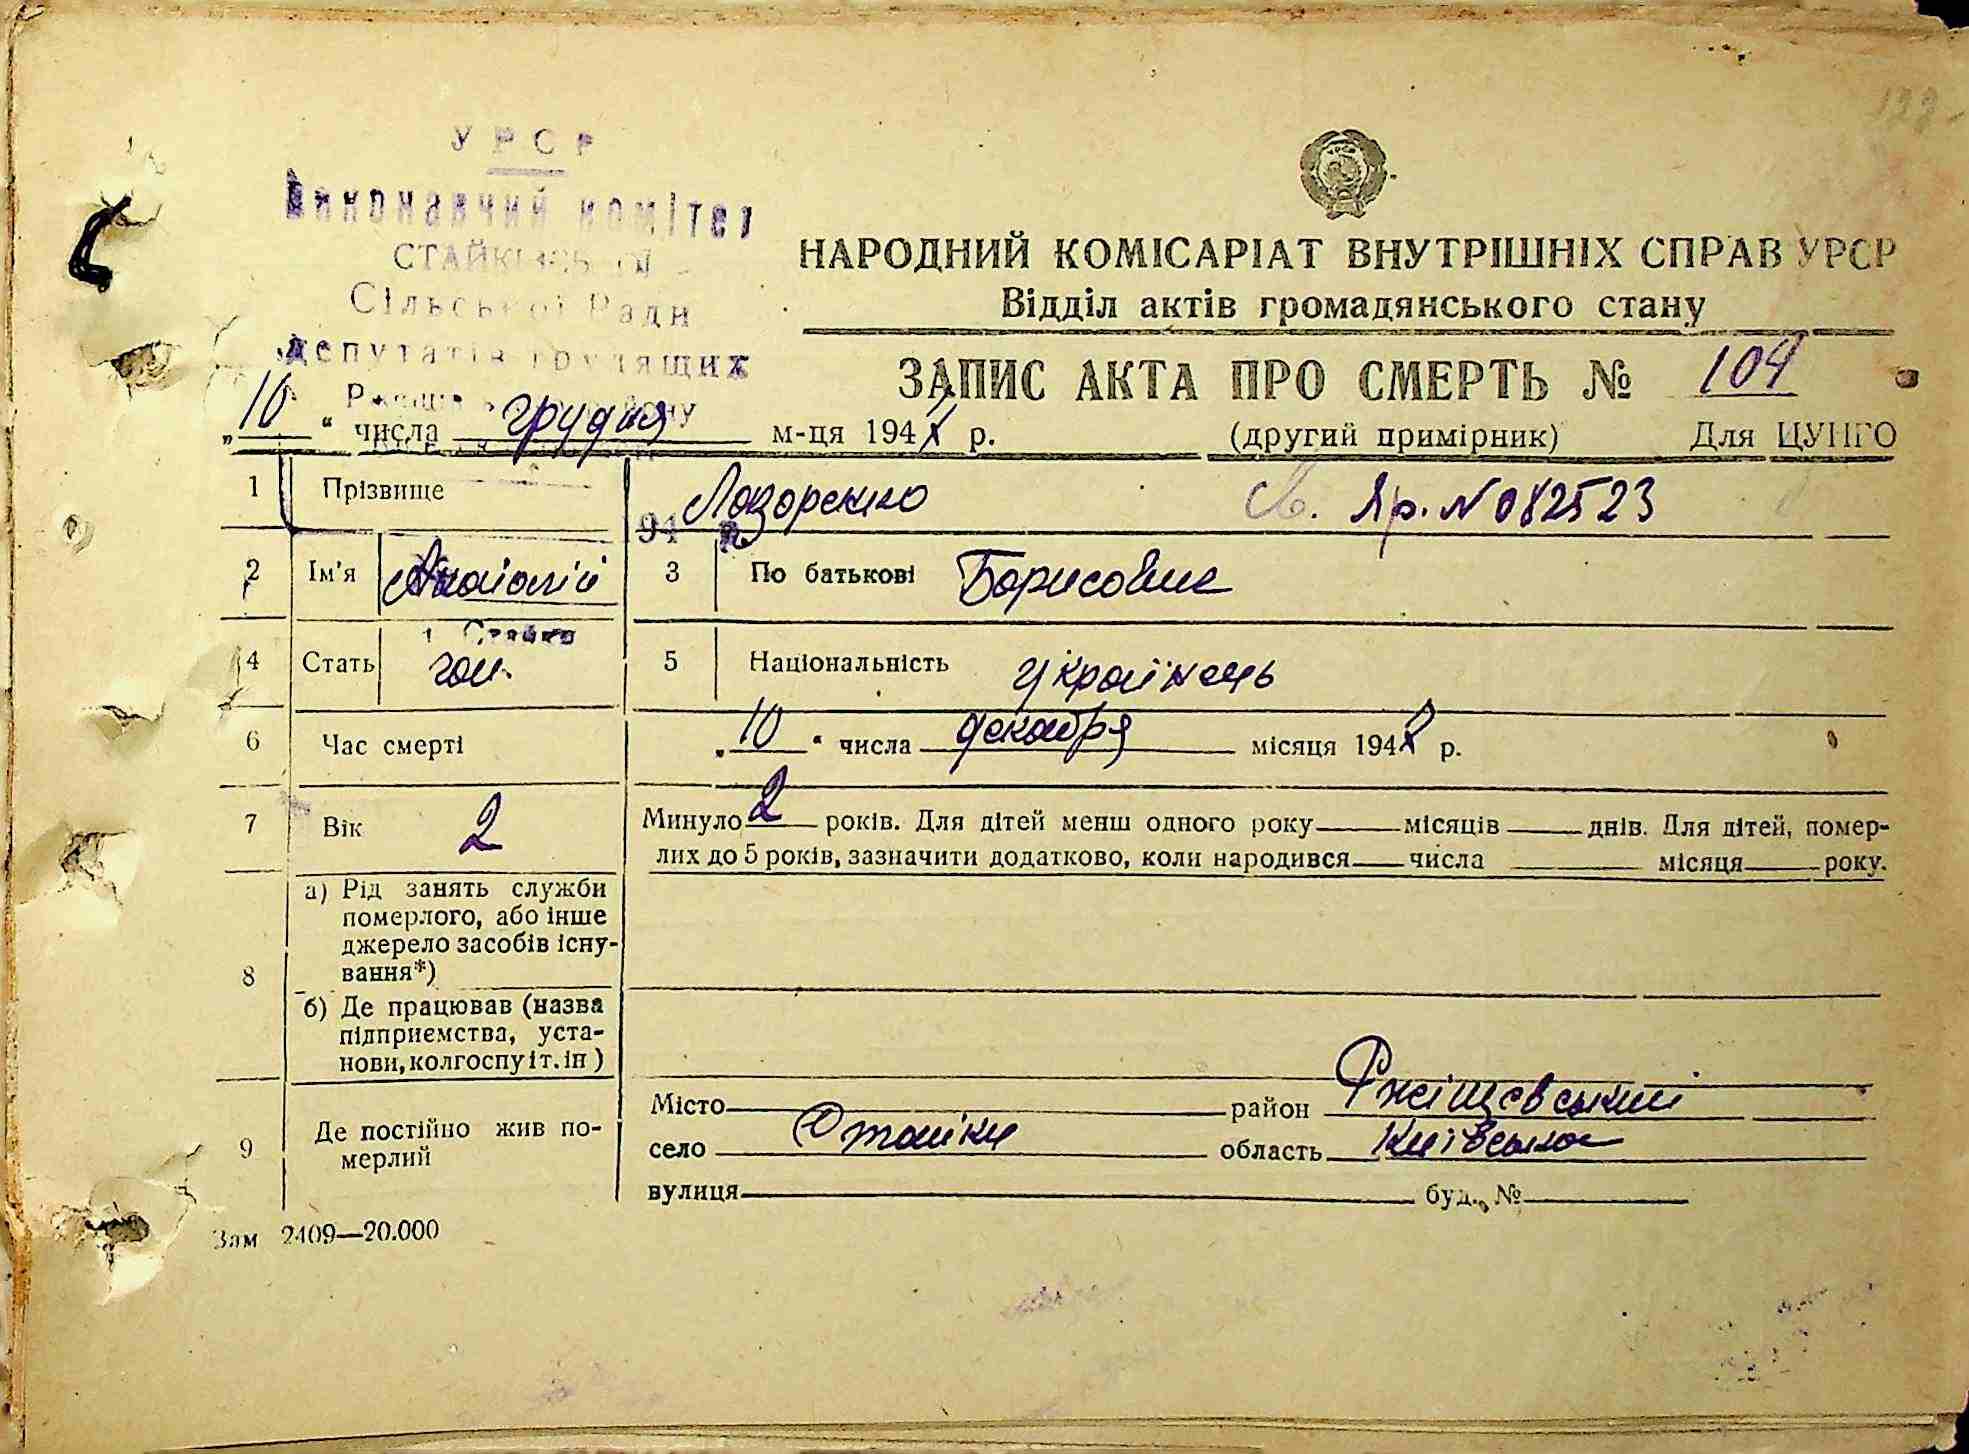 УРСР
Виконавчий комітет
СТАЙКІВСЬКОЇ
Сільської Ради
депутатів трудящих
НАРОДНИЙ КОМІСАРІАТ ВНУТРІШНІХ СПРАВ УРСР
Відділ актів громадянського стану
ЗАПИС АКТА ПРО СМЕРТЬ № 104
„10“ числа грудня м-ця 194 р. (другий примірник) Для ЦУНГО
1 Прізвище Лазоренко Яр. № 082523
2 Ім'я Анатолій 3 По батькові Борисович
с. Стайки
4 Стать чол. 5 Національність українець
6 Час смерті „10“ числа декабря місяця 194 р.
7 Вік 2 Минуло 2 років. Для дітей менш одного року місяців днів. Для дітей, помер-
лих до 5 років, зазначити додатково, коли народився числа місяця року.
8 а) Рід занять служби
померлого, або інше
джерело засобів існу-
вання*)
б) Де працював (назва
підприємства, уста-
нови, колгоспу і т. ін)
9 Де постійно жив по-
мерлий
Місто район Ржіщевський
село Стайки область Київська
вулиця буд. №
Зам 2409—20.000